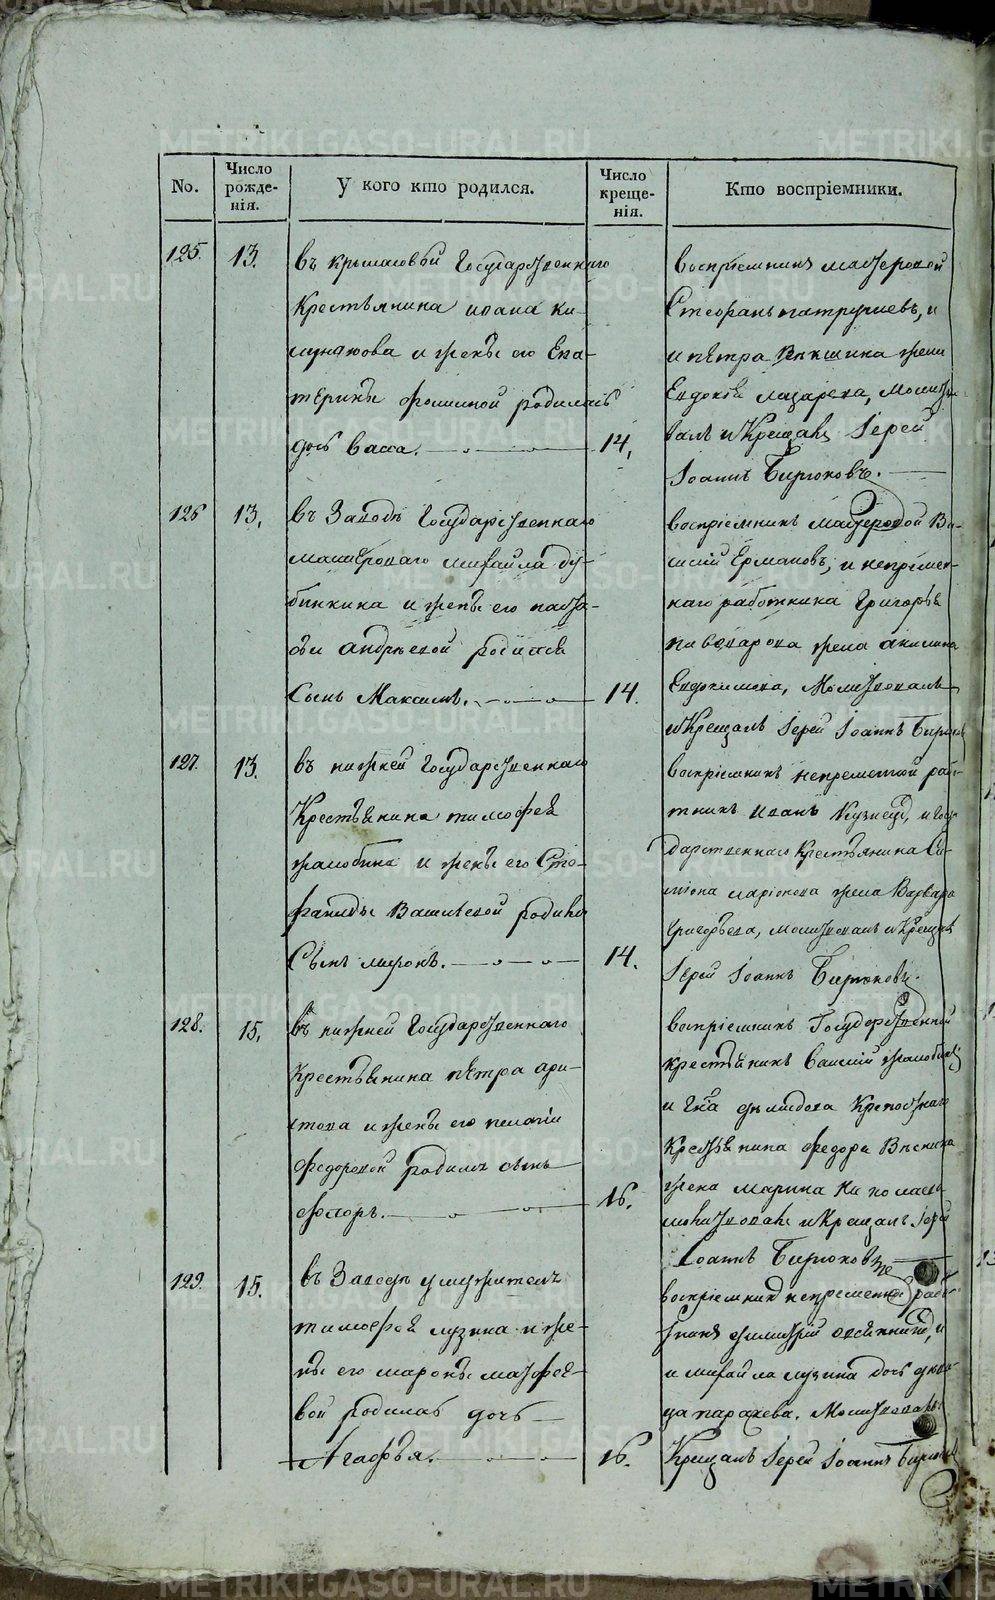 METRIKI.GASO-URAL.RU
No.
Число рожде-нія.
У кого кто родился.
Число креще-нія.
Кто воспріемники.
125.
13.
въ Государственнаго
Крестьянина ивана
и жены его Ека-
терины родилась
дочь Васса.
14.
воспріемникъ мастеровой
Стефанъ и
и петра жена
Евдокія лазарева,
и Крещалъ Іерей
Іоаннъ Бирюковъ.
126
13.
въ Заводѣ Государственнаго
мастероваго михайла ду-
бинкина и жены его
андреевой родился
Сынъ Максимъ.
14.
воспріемникъ мастеровой Ва-
силій Ермаковъ, и непремен-
наго работника Григорья
пивоварова жена акилина
Евдокимова, Молитвовалъ
и Крещалъ Іерей Іоаннъ
127.
13.
въ нижней Государственнаго
Крестьянина тимофея
жалобина и жены его Сте-
фаниды Васильевой родился
Сынъ миронъ.
14.
воспріемникъ непременной рабо-
тникъ иванъ Кузнецовъ, и Госу-
дарственнаго Крестьянина Си-
миона ларионова жена Варвара
григорьева, молитвовалъ и Крещалъ
Іерей Іоаннъ Бирюковъ.
128.
15.
въ нижней Государственнаго
крестьянина петра
и жены его пелагіи
федоровой родился сынъ
флоръ.
16.
воспріемникъ Государственной
крестьянинъ Василій жалобинъ
и Крепостнаго
Крестьянина федора
жена марина
молитвовалъ и Крещалъ Іерей
Іоаннъ Бирюковъ
129.
15.
въ Заводѣ у служителя
тимофея лузина и же-
ны его матфее-
вой родилась дочь
Агафья.
16.
воспріемник непременной рабо-
и михайла лузина дочь деви-
ца параскева. Молитвовалъ
Крещалъ Іерей Іоаннъ